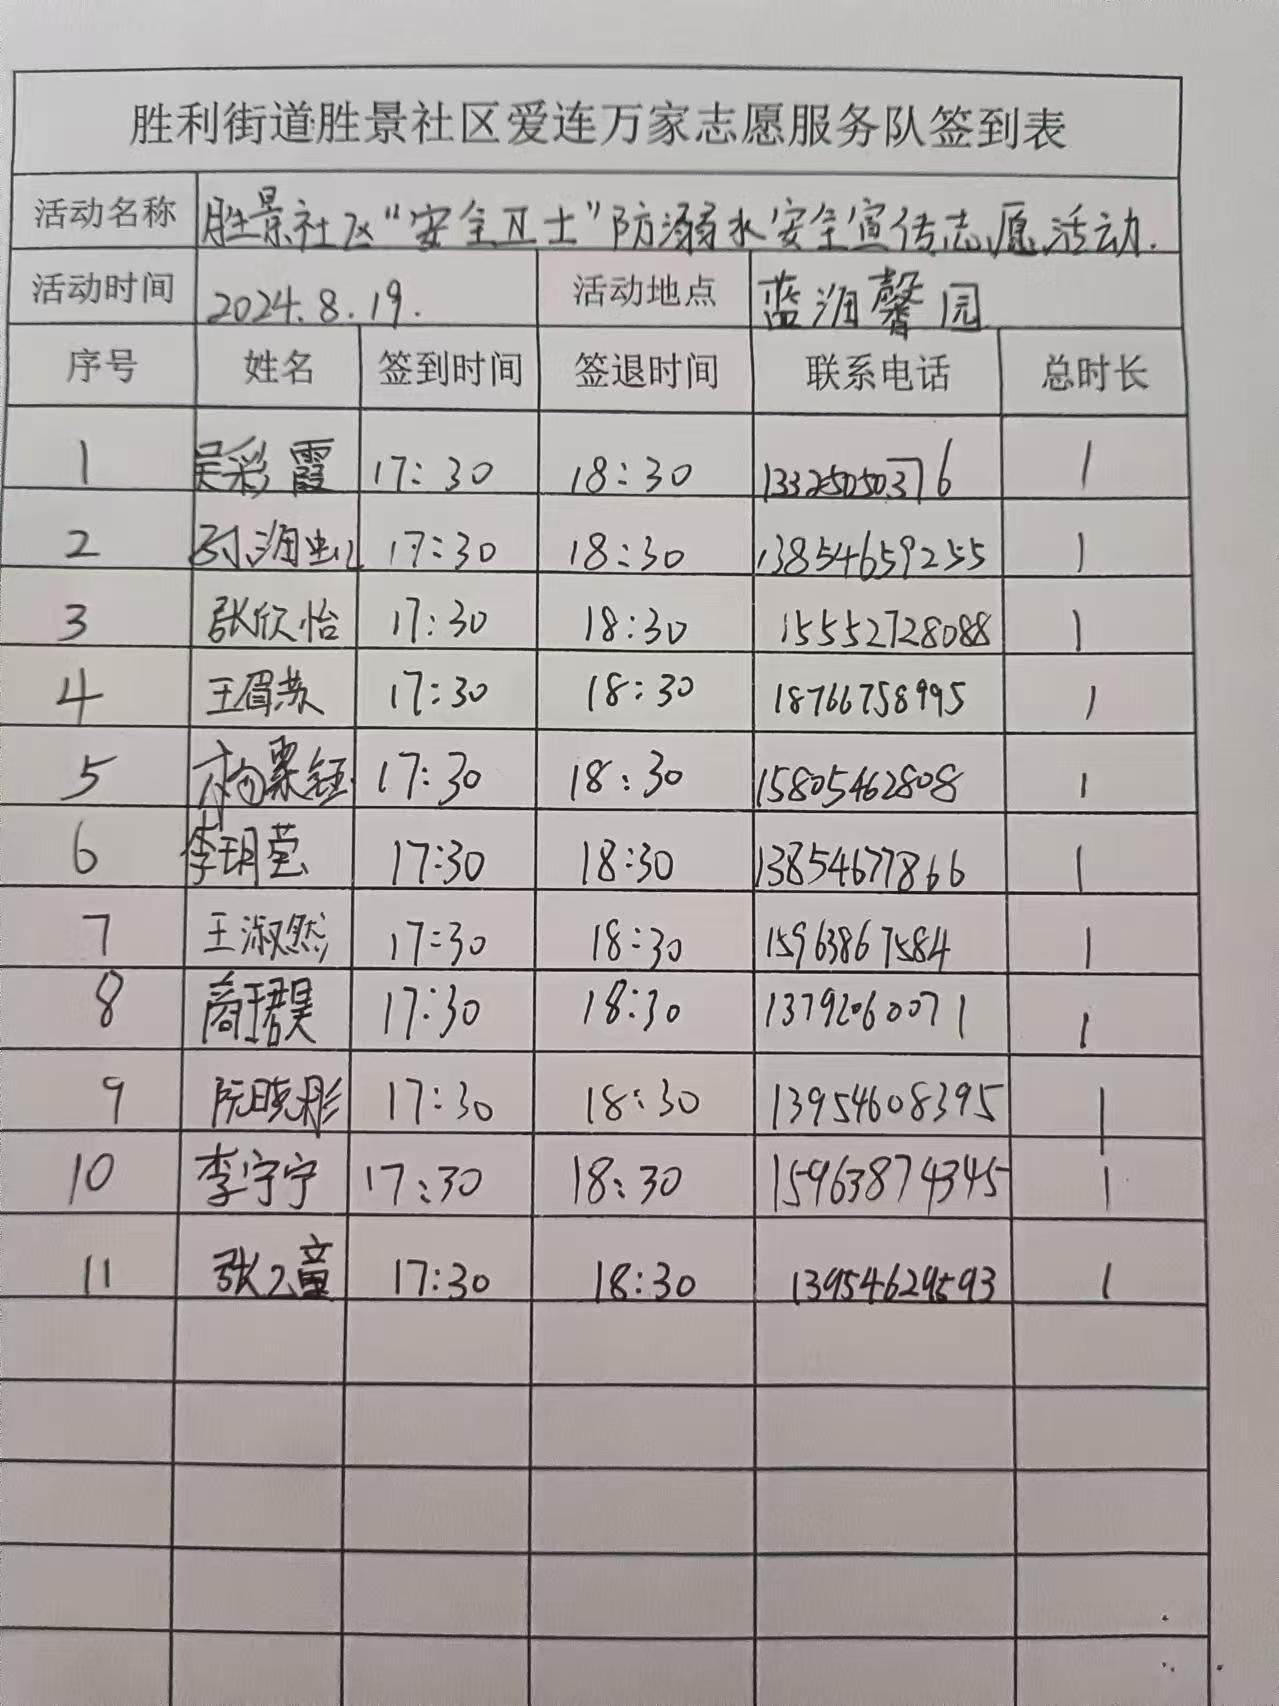 胜利街道胜景社区爱连万家志愿服务队签到表
活动名称 胜景社区“安全卫士”防溺水安全宣传志愿活动.
活动时间 2024.8.19. 活动地点 蓝海馨园
序号 姓名 签到时间 签退时间 联系电话 总时长
1 吴彩霞 17:30 18:30 13325050376 1
2 17:30 18:30 13854659255 1
3 张欣怡 17:30 18:30 15552728088 1
4 王眉苏 17:30 18:30 18766758995 1
5 17:30 18:30 15805462808 1
6 李玥莹 17:30 18:30 13854677866 1
7 王淑然 17:30 18:30 15963867584 1
8 商珺昊 17:30 18:30 13792060071 1
9 阮晓彤 17:30 18:30 13954608395 1
10 李宇宁 17:30 18:30 15963874345 1
11 17:30 18:30 13954629593 1